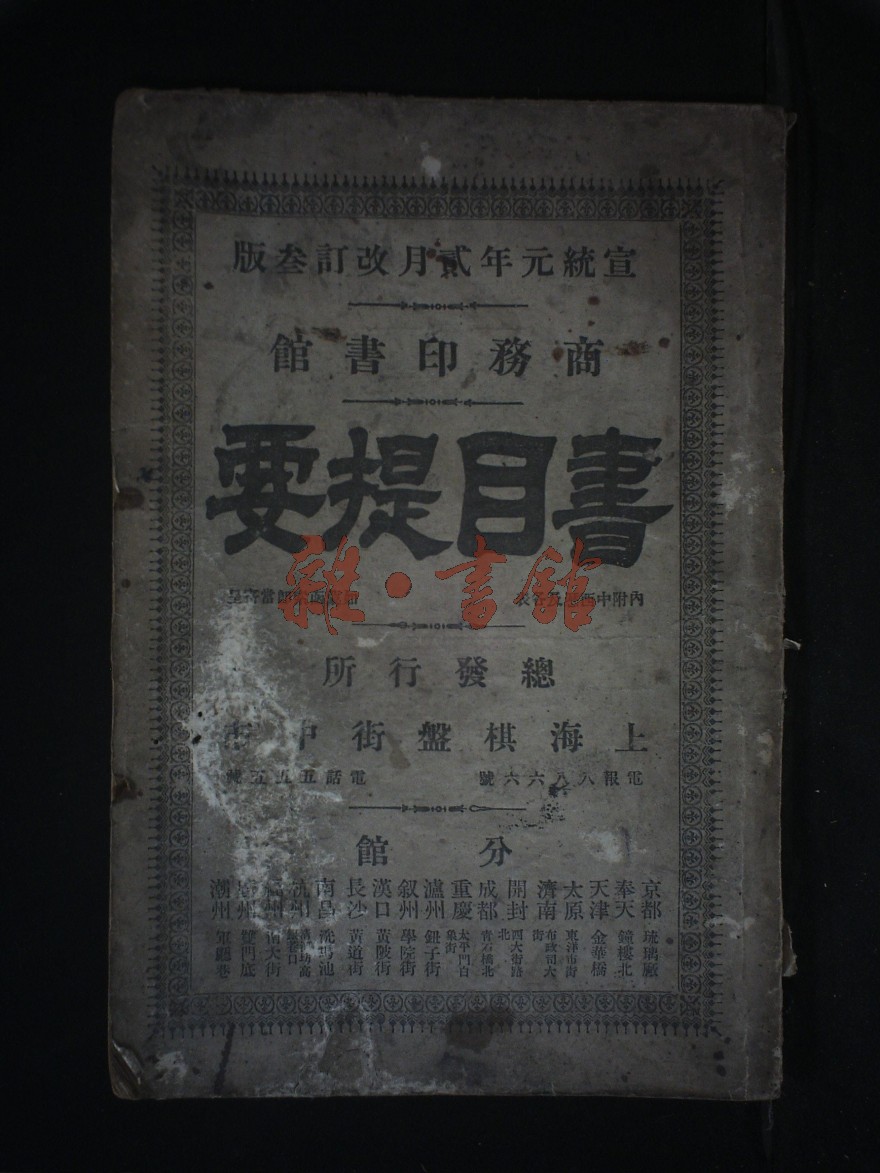 宣統元年貳月改訂叁版
商務印書館
書目提要
雜·書館
內附中西 表
總發行所
上海棋盤街中
電報八八六六號 電話五五五
分館
京都 琉璃廠
奉天 鐘樓北
天津 金華橋
太原 東洋市街
濟南 布政司大街
開封 西大街路北
成都 青石橋北
重慶 太平門白象街
瀘州 鈕子街
叙州 學院街
漢口 黃陂街
長沙 黃道街
南昌 洗馬池
杭州
福州 南大街
廣州 雙門底
潮州 軍廳巷